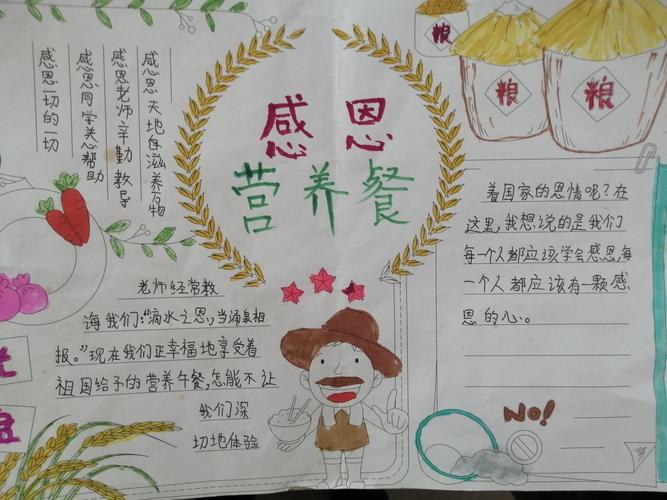 感恩
营养餐
感恩天地自滋养万物
感恩老师辛勤教导
感恩同学关心帮助
感恩一切的一切
粮
粮
粮
老师经常教
诲我们:“滴水之恩,当涌泉相
报。”现在我们正幸福地享受着
祖国给予的营养午餐,怎能不让
我们深
切地体验
着国家的恩情呢?在
这里,我想说的是我们
每一个人都应该学会感恩,每
一个人都应该有一颗感
恩的心。
NO!
光
盘